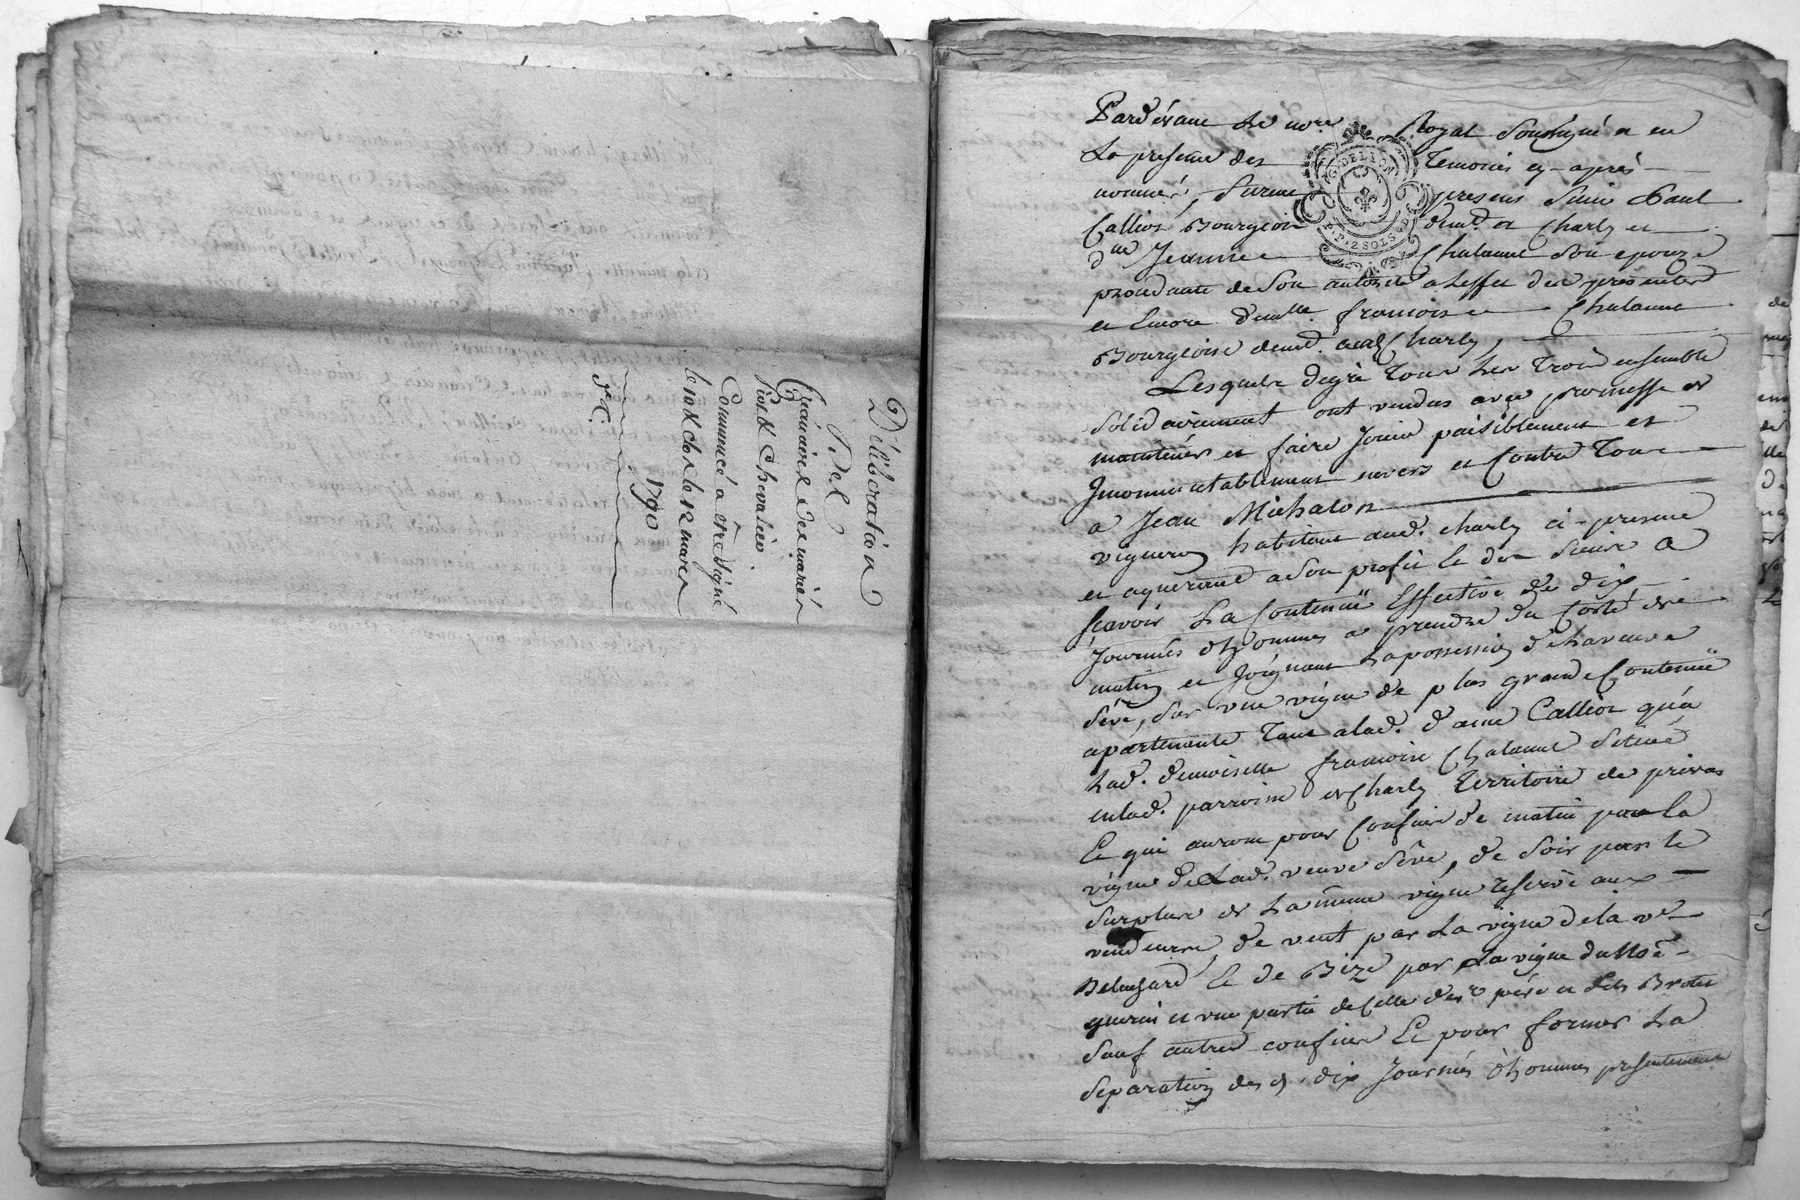 Délibération
Del
Grénoire Desmarés
Piot & Chevalier
Commencé a être Signé
le 10 & clos le 12 mars
1790
Pardévant Le no.re Royal Soussigné et en
La presence des Temoins cy-après
nommés, Furent presens Sieur Paul
Calliot Bourgeois dem.t a Charly et
d.me Jeanne Chalamel Son epouze
procedante de Son autorité a Leffet des presentes
et Encore dem.lle francoise Chalamel
Bourgeoise dem.t aud. Charly,
Lesquels degré Tous Les Trois ensemble
Solidairement ont vendus avec promesse de
maintenir et faire Jouir paisiblement et
Jncommutablement envers et Contre Tous
a Jean Michalon
vigneron habitant aud. Charly ci-present
et aquerant a Son profit le dit Sieur a
Scavoir La Contenuë Effective de dix
Journés d'hommes a prendre du Coté de
matin et Joignant La possession de La veuve
Séve, Sur une vigne de plus grande Contenuë
apartenante Tant a lad. dame Calliot qu'a
Lad. demoiselle francoise Chalamel Scituée
en lad. parroisse de Charly Territoire de privas
Et qui auront pour Confins de matin par la
vigne de Lad. veuve Séve, de Soir par le
Surplus de La même vigne reservée aux
vendeurs, de vent par La vigne de la v.e
Et de Bize par La vigne du
guerin et une partie de Celle des
Sauf autres confins Et pour former La
Separation des d. dix Journés d'hommes presentement